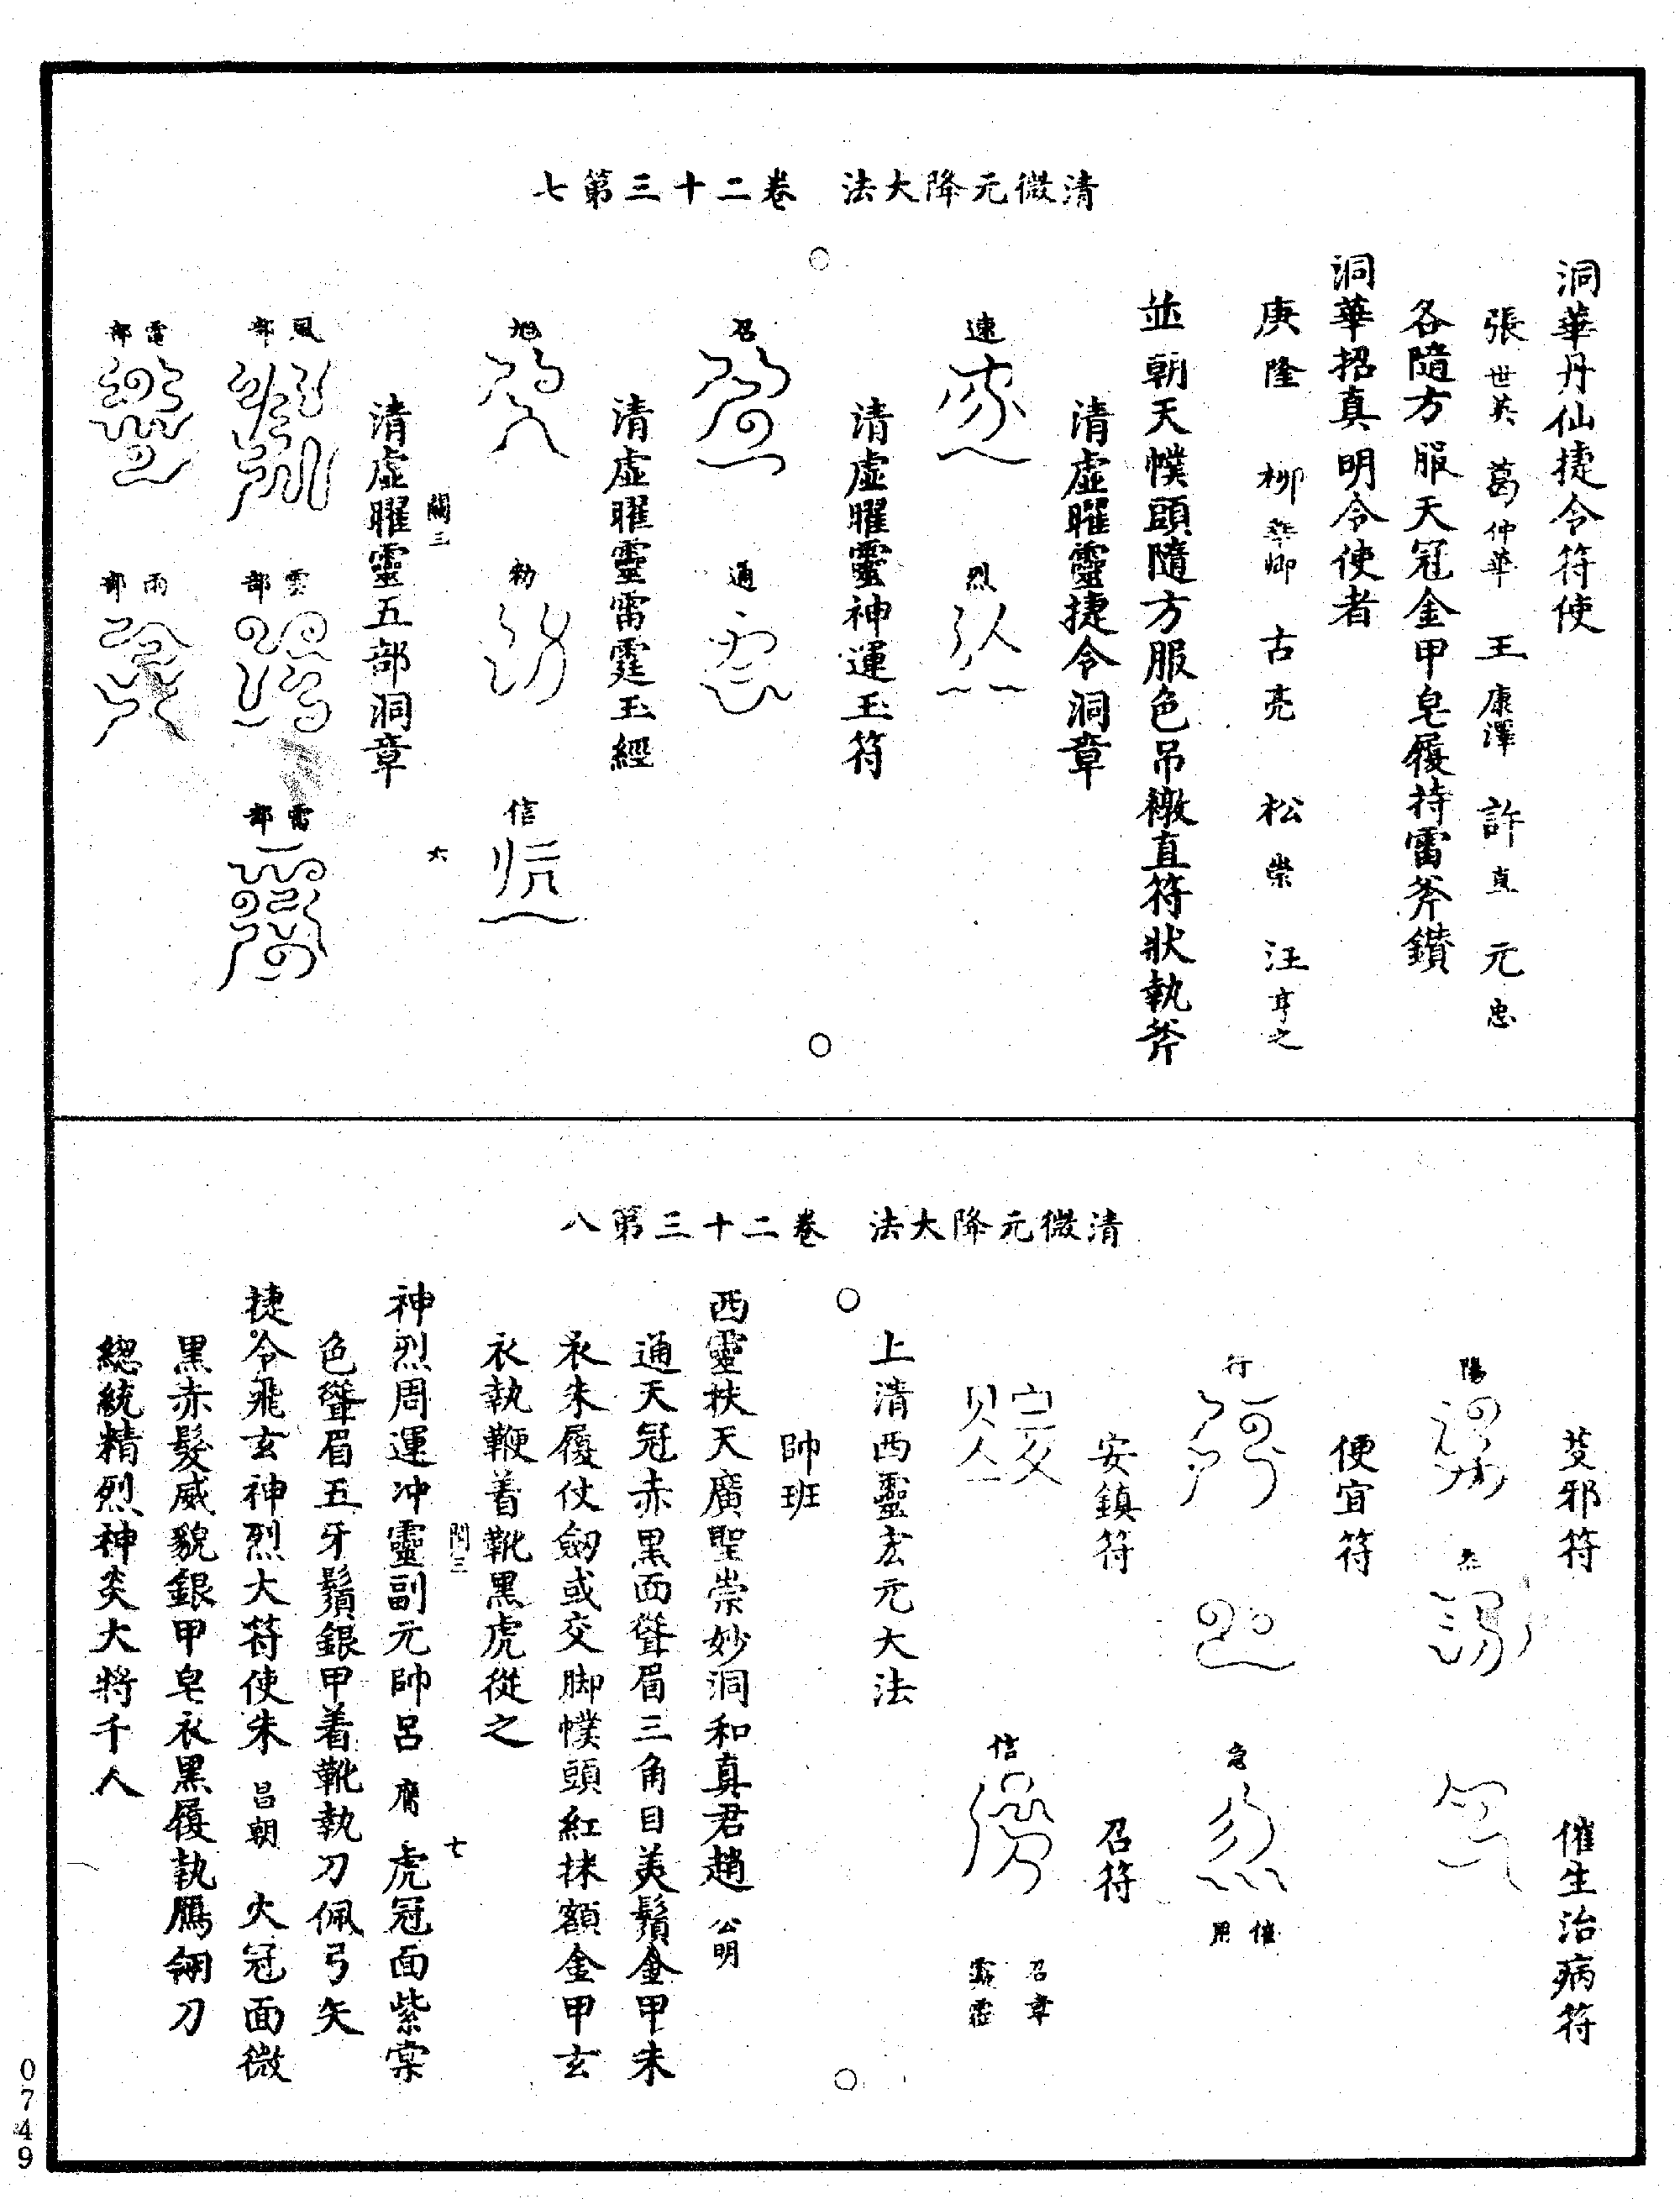 清微元降大法　卷二十三第七
洞華丹仙捷令符使
張世英　葛仲華　王康澤　許直　元忠
各隨方服天冠金甲皂履持雷斧鑽
洞華招真明令使者
庚隆　柳華卿　古亮　松崇　汪亨之
並朝天幞頭隨方服色吊襒直符狀執斧
清虛曜靈捷令洞章
速
烈
清虛曜靈神運玉符
召
通
清虛曜靈雷霆玉經
旭
勑
信
闕三　六
清虛曜靈五部洞章
風部
雲部
雷部
電部
雨部
清微元降大法　卷二十三第八
芟邪符　催生治病符
陽
便宜符
行
急
催用
安鎮符　召符
信
召章
霹靂
上清西靈宏元大法
帥班
西靈扶天廣聖崇妙洞和真君趙公明
通天冠赤黑面聳眉三角目美鬚金甲朱
衣朱履仗劒或交脚幞頭紅抹額金甲玄
衣執鞭着靴黑虎從之
闕三　七
神烈周運冲靈副元帥呂膺虎冠面紫棠
色聳眉五牙鬚銀甲着靴執刀佩弓矢
捷令飛玄神烈大符使朱昌朝　火冠面微
黑赤髮威貌銀甲皂衣黑履執鴈翎刀
總統精烈神炎大將千人
0749